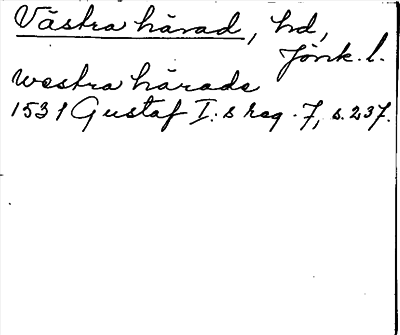 Västra härad, hd,
Jönk. l.
westra härade
1531 Gustaf I:s reg. 7, s. 237.